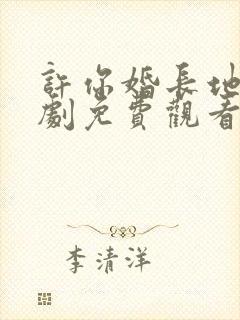 許你婚長地
劇免費觀看
李清洋